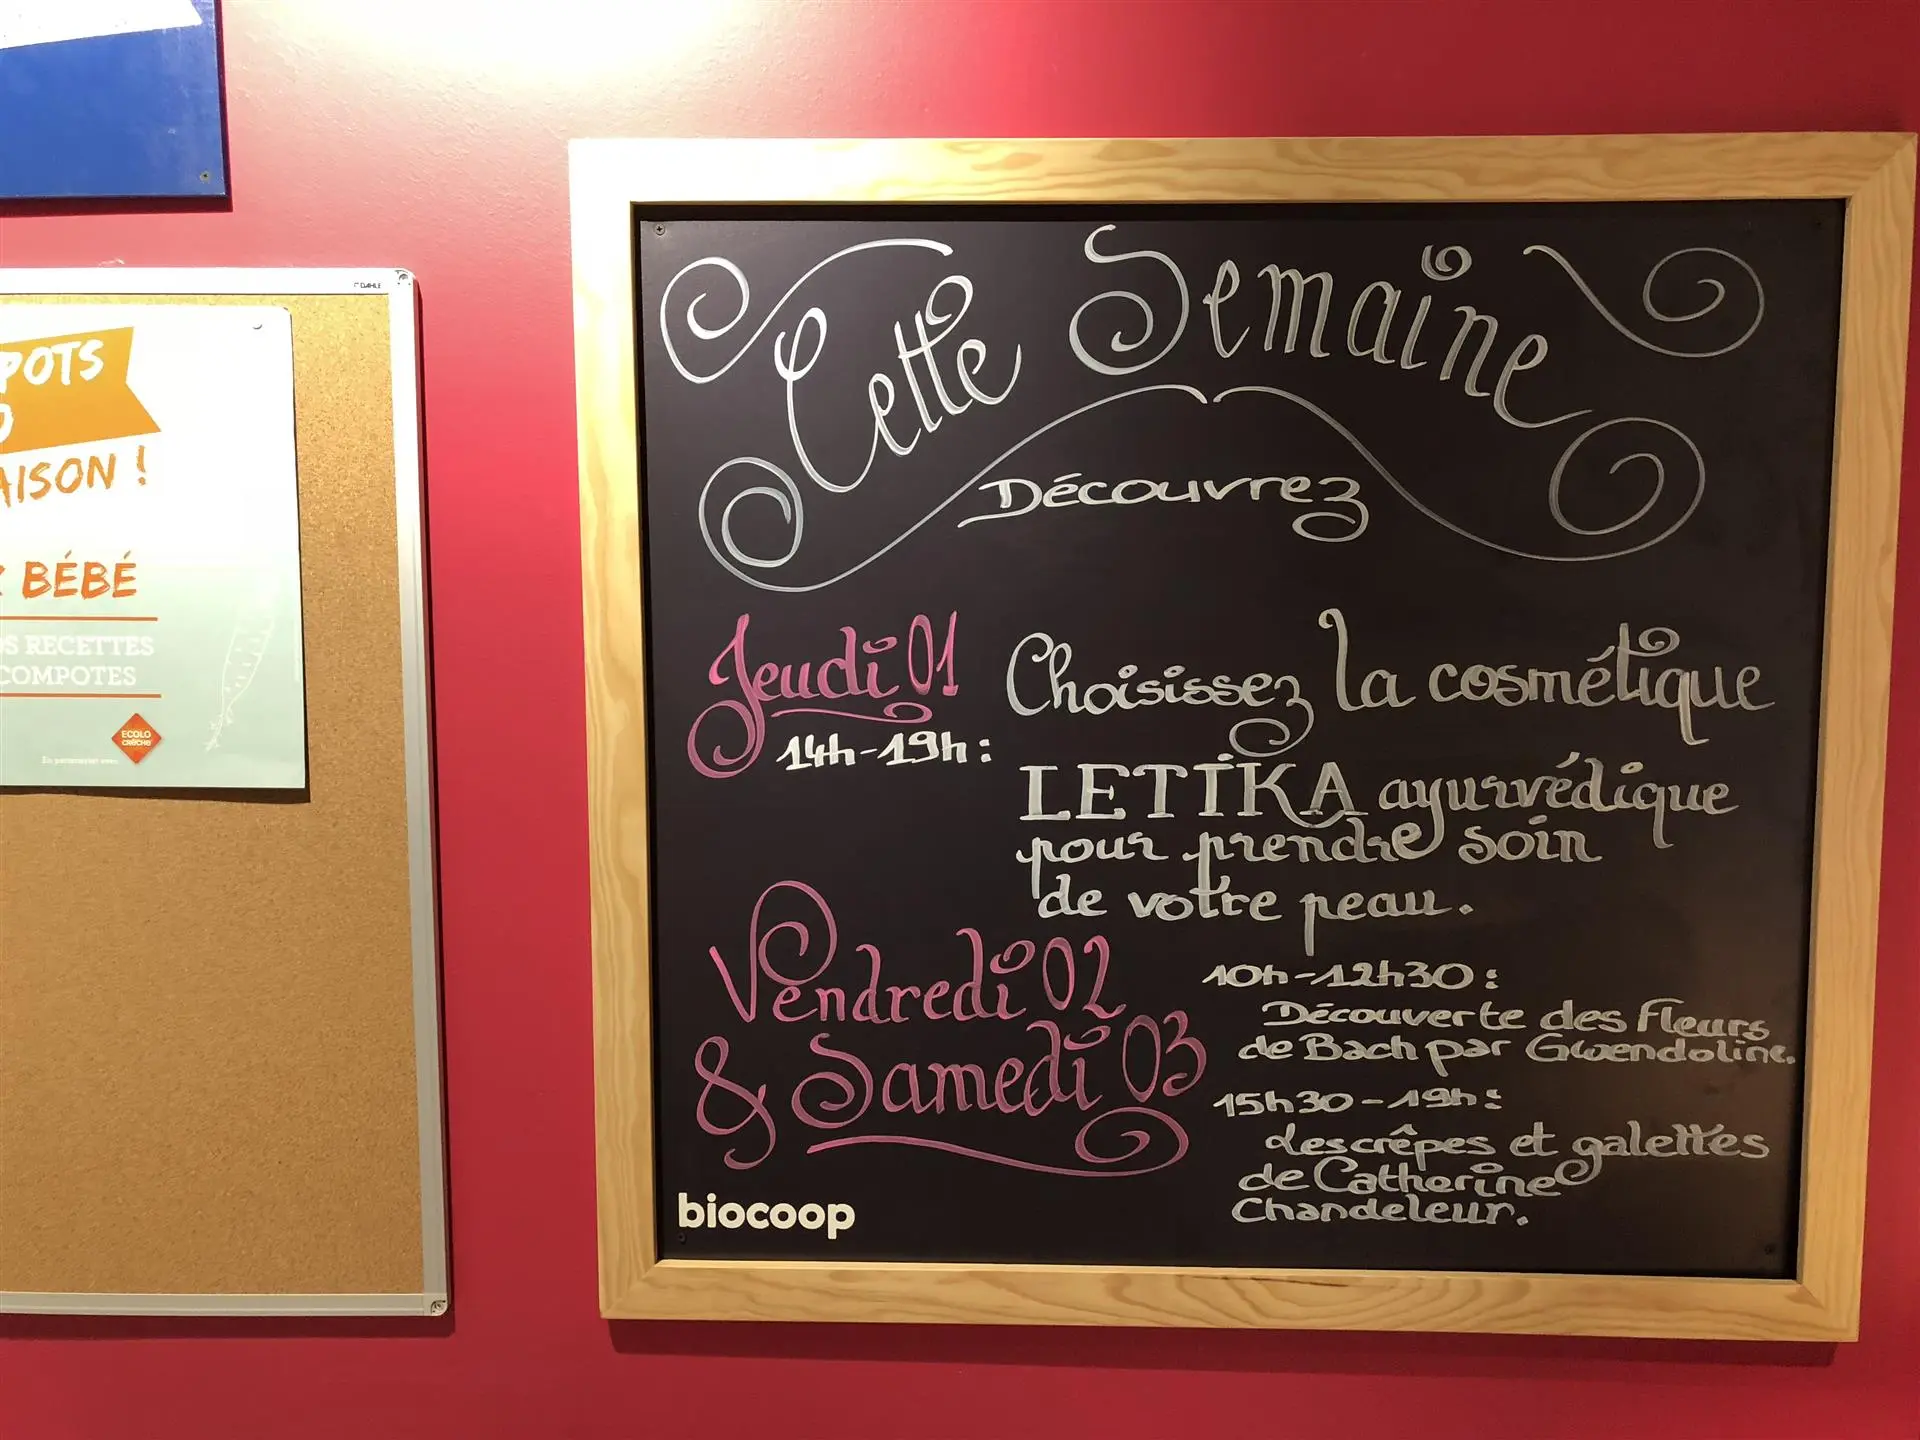 DAHLE
POTS
AISON !
BÉBÉ
RECETTES
COMPOTES
ECOLO
CRÈCHE
En partenariat avec
Cette Semaine
Découvrez
Jeudi 01
14h-19h:
Choisissez la cosmétique
LETIKA ayurvédique
pour prendre soin
de votre peau.
Vendredi 02
& Samedi 03
10h-12h30:
Découverte des Fleurs
de Bach par Gwendoline.
15h30-19h:
Les crêpes et galettes
de Catherine
Chandeleur.
biocoop